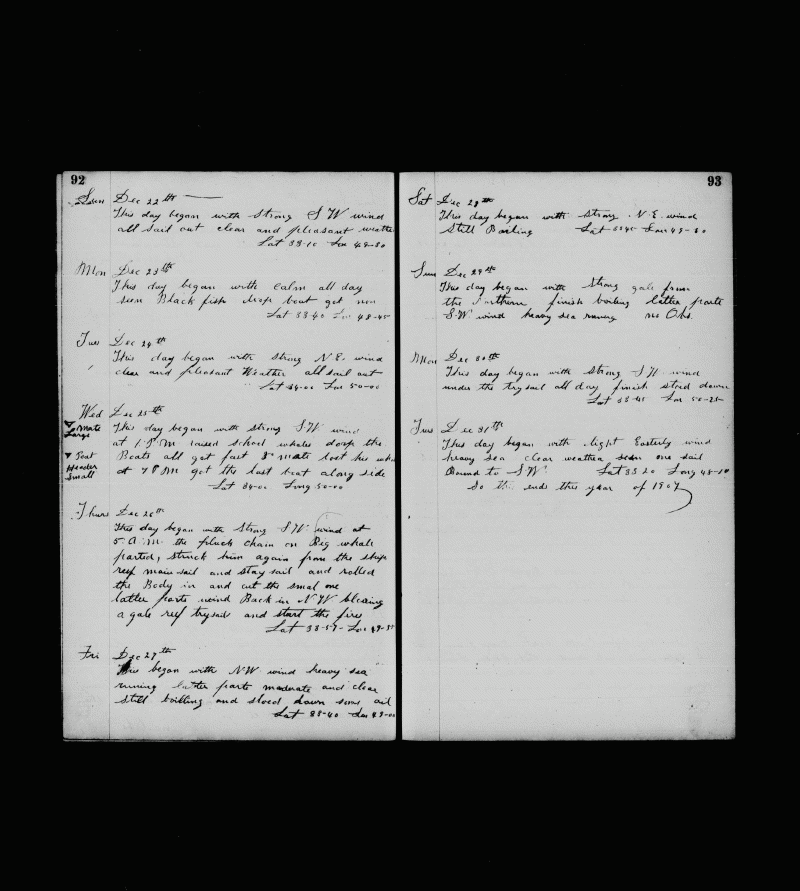 92
Sun Dec 22th
This day began with strong SW wind
all sail out clear and pleasant weather
Lat 33-10 Lon 49-30
Mon Dec 23th
This day began with calm all day
seen Black fish drop boat got non
Lat 33-40 Lon 48-45
Tues Dec 24th
This day began with strong N.E. wind
clear and pleasant Weather all sail out
Lat 34-00 Lon 50-00
Wed Dec 25th
mate
Large
Boat
Header
Small
This day began with strong SW wind
at 1 P M raised school whales the
Boats all got fast mate lost his
at 7 P M got the last boat along side
Lat 34-00 Long 50-00
Thurs Dec 26th
This day began with strong SW wind at
5 A.M. the fluck chain on Big whale
parted, struck him again from the ship
reef mainsail and staysail and rolled
the Body in and cut the smal one
latter parts wind Back in N.W blowing
a gale reef trysail and start the fires
Lat 33-57 Lon
Fri Dec 27th
This began with NW wind heavy sea
running latter parts moderate and clear
still boilling and stoed down some oil
Lat 33-40 Lon
93
Sat Dec 28th
This day began with strong N.E. wind
still Boiling Lat Lon
Sun Dec 29th
This day began with strong gale from
the finish boiling latter parts
S.W wind heavy sea runing no Obs.
Mon Dec 30th
This day began with strong SW wind
under the trysail all day finish stoed down
Lat 33-45 Lon 50-25
Tues Dec 31th
This day began with light Easterly wind
heavy sea clear weather seen one sail
Bound to S.W. Lat 33 20 Long 48-10
So the ends this year of 1907